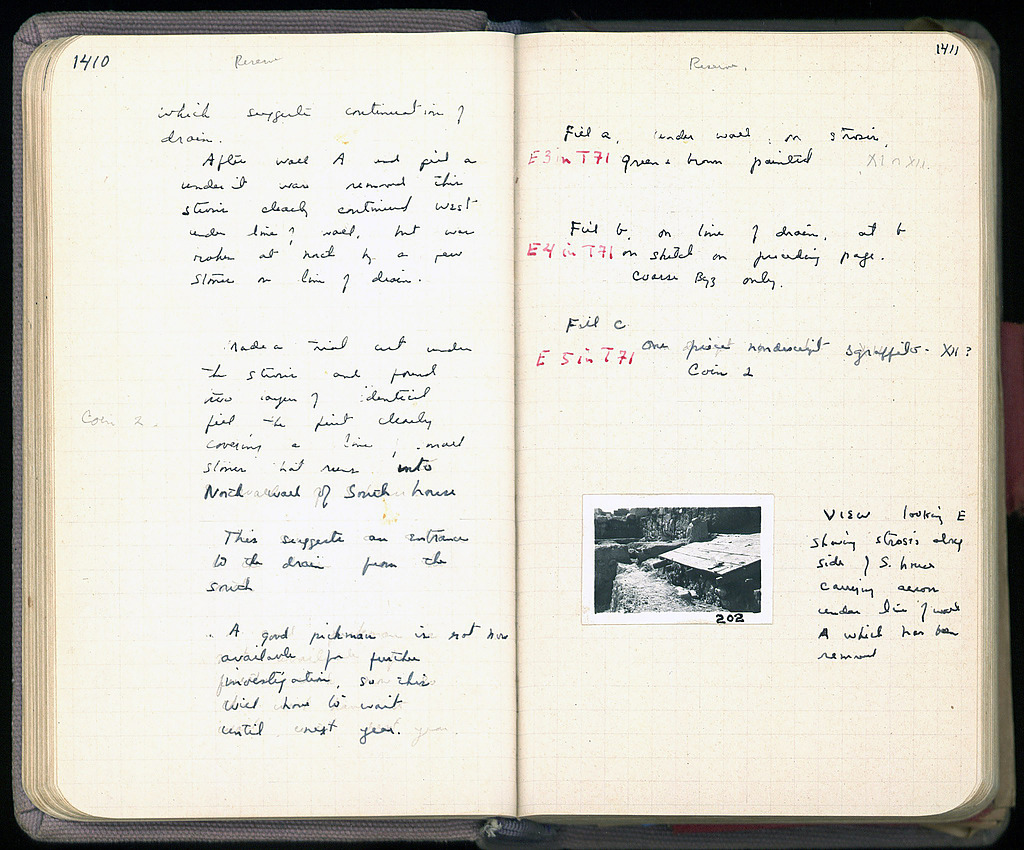 1410
Reserve
which suggests continuation of
drain.
After wall A and fill a
under it were removed this
strosis clearly continued west
under line of wall, but was
broken at north by a few
stones on line of drain.
Made a trial cut under
the strosis and found
two layers of identical
Coin 2. fill the first clearly
covering a line of small
stones that runs into
North wall of South house
This suggests an entrance
to the drain from the
south
A good pickman is not now
available for further
investigation, so this
will have to wait
until next year.
1411
Reserve.
Fill a, under wall, on strosis,
E3 in T71 green & brown painted XI or XII.
Fill b, on line of drain, at b
E4 in T71 on sketch on preceding page.
Coarse Byz only.
Fill c
E5 in T71 One piece nondescript sgraffito - XII?
Coin 2
202
View looking E
showing strosis along
side of S. house
carrying across
under line of wall
A which has been
removed